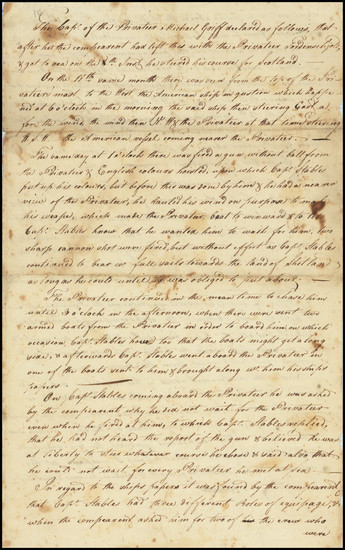 The Capt. of this Privatier Michael Griff declared as follows, that
after he the compearent had left there with the Privatier
& got to sea on the 8th Inst. he steered his course for Scotland.
On the 12th same month there was seen from the top of the Pri-
vatiers mast to the West the American ship in question which happe-
ned at 6 o'clock in the morning the said ship then steering
for the wind, the wind then & the Privatier at that time steering
the American vessel coming nearer the Privatier.
The same day at 1 o'clock there was fired a gun without ball from
the Privatier & English colours hoisted, upon which Capt. Stables
put up his colours, but before this was done by him & he had a near-
view of the Privatier, he hauled his wind on purpose to make
his escape, which made the Privatier beat to windward & to let
Capt. Stables know that he wanted him to wait for him, two
sharp cannon shot were fired, but without effect as Capt. Stables
continued to bear on full sails towards the land of Shetland
as long as he could untill he was obliged to put about.
The Privatier continued in the mean time to chase him
untill 3 o'clock in the afternoon, when there were sent two
armed boats from the Privatier in order to board him on which
occasion Capt. Stables hove too that the boats might get along
side, & afterwards Capt. Stables went aboard the Privatier in
one of the boats sent to him & brought along with him his ships
papers.
On Capt. Stables coming aboard the Privatier he was asked
by the compearent why he did not wait for the Privatier
even when he fired at him, to which Capt. Stables replied,
that he had not heard the report of the gun & believed he was
at liberty to steer whatever course he chose & said also that
he could not wait for every Privatier he met at sea.
In regard to the ships papers it was found by the compearent
that Capt. Stables had three different Roles of equipage, &
when the compearent asked him for two of the crew who
were